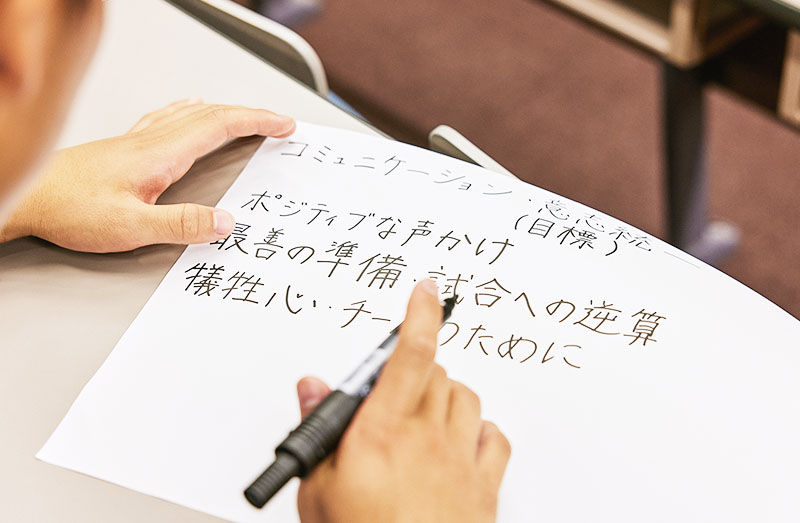 コミュニケーション・意志統一
(目標)
ポジティブな声かけ
最善の準備・試合への逆算
犠牲心・チー のために